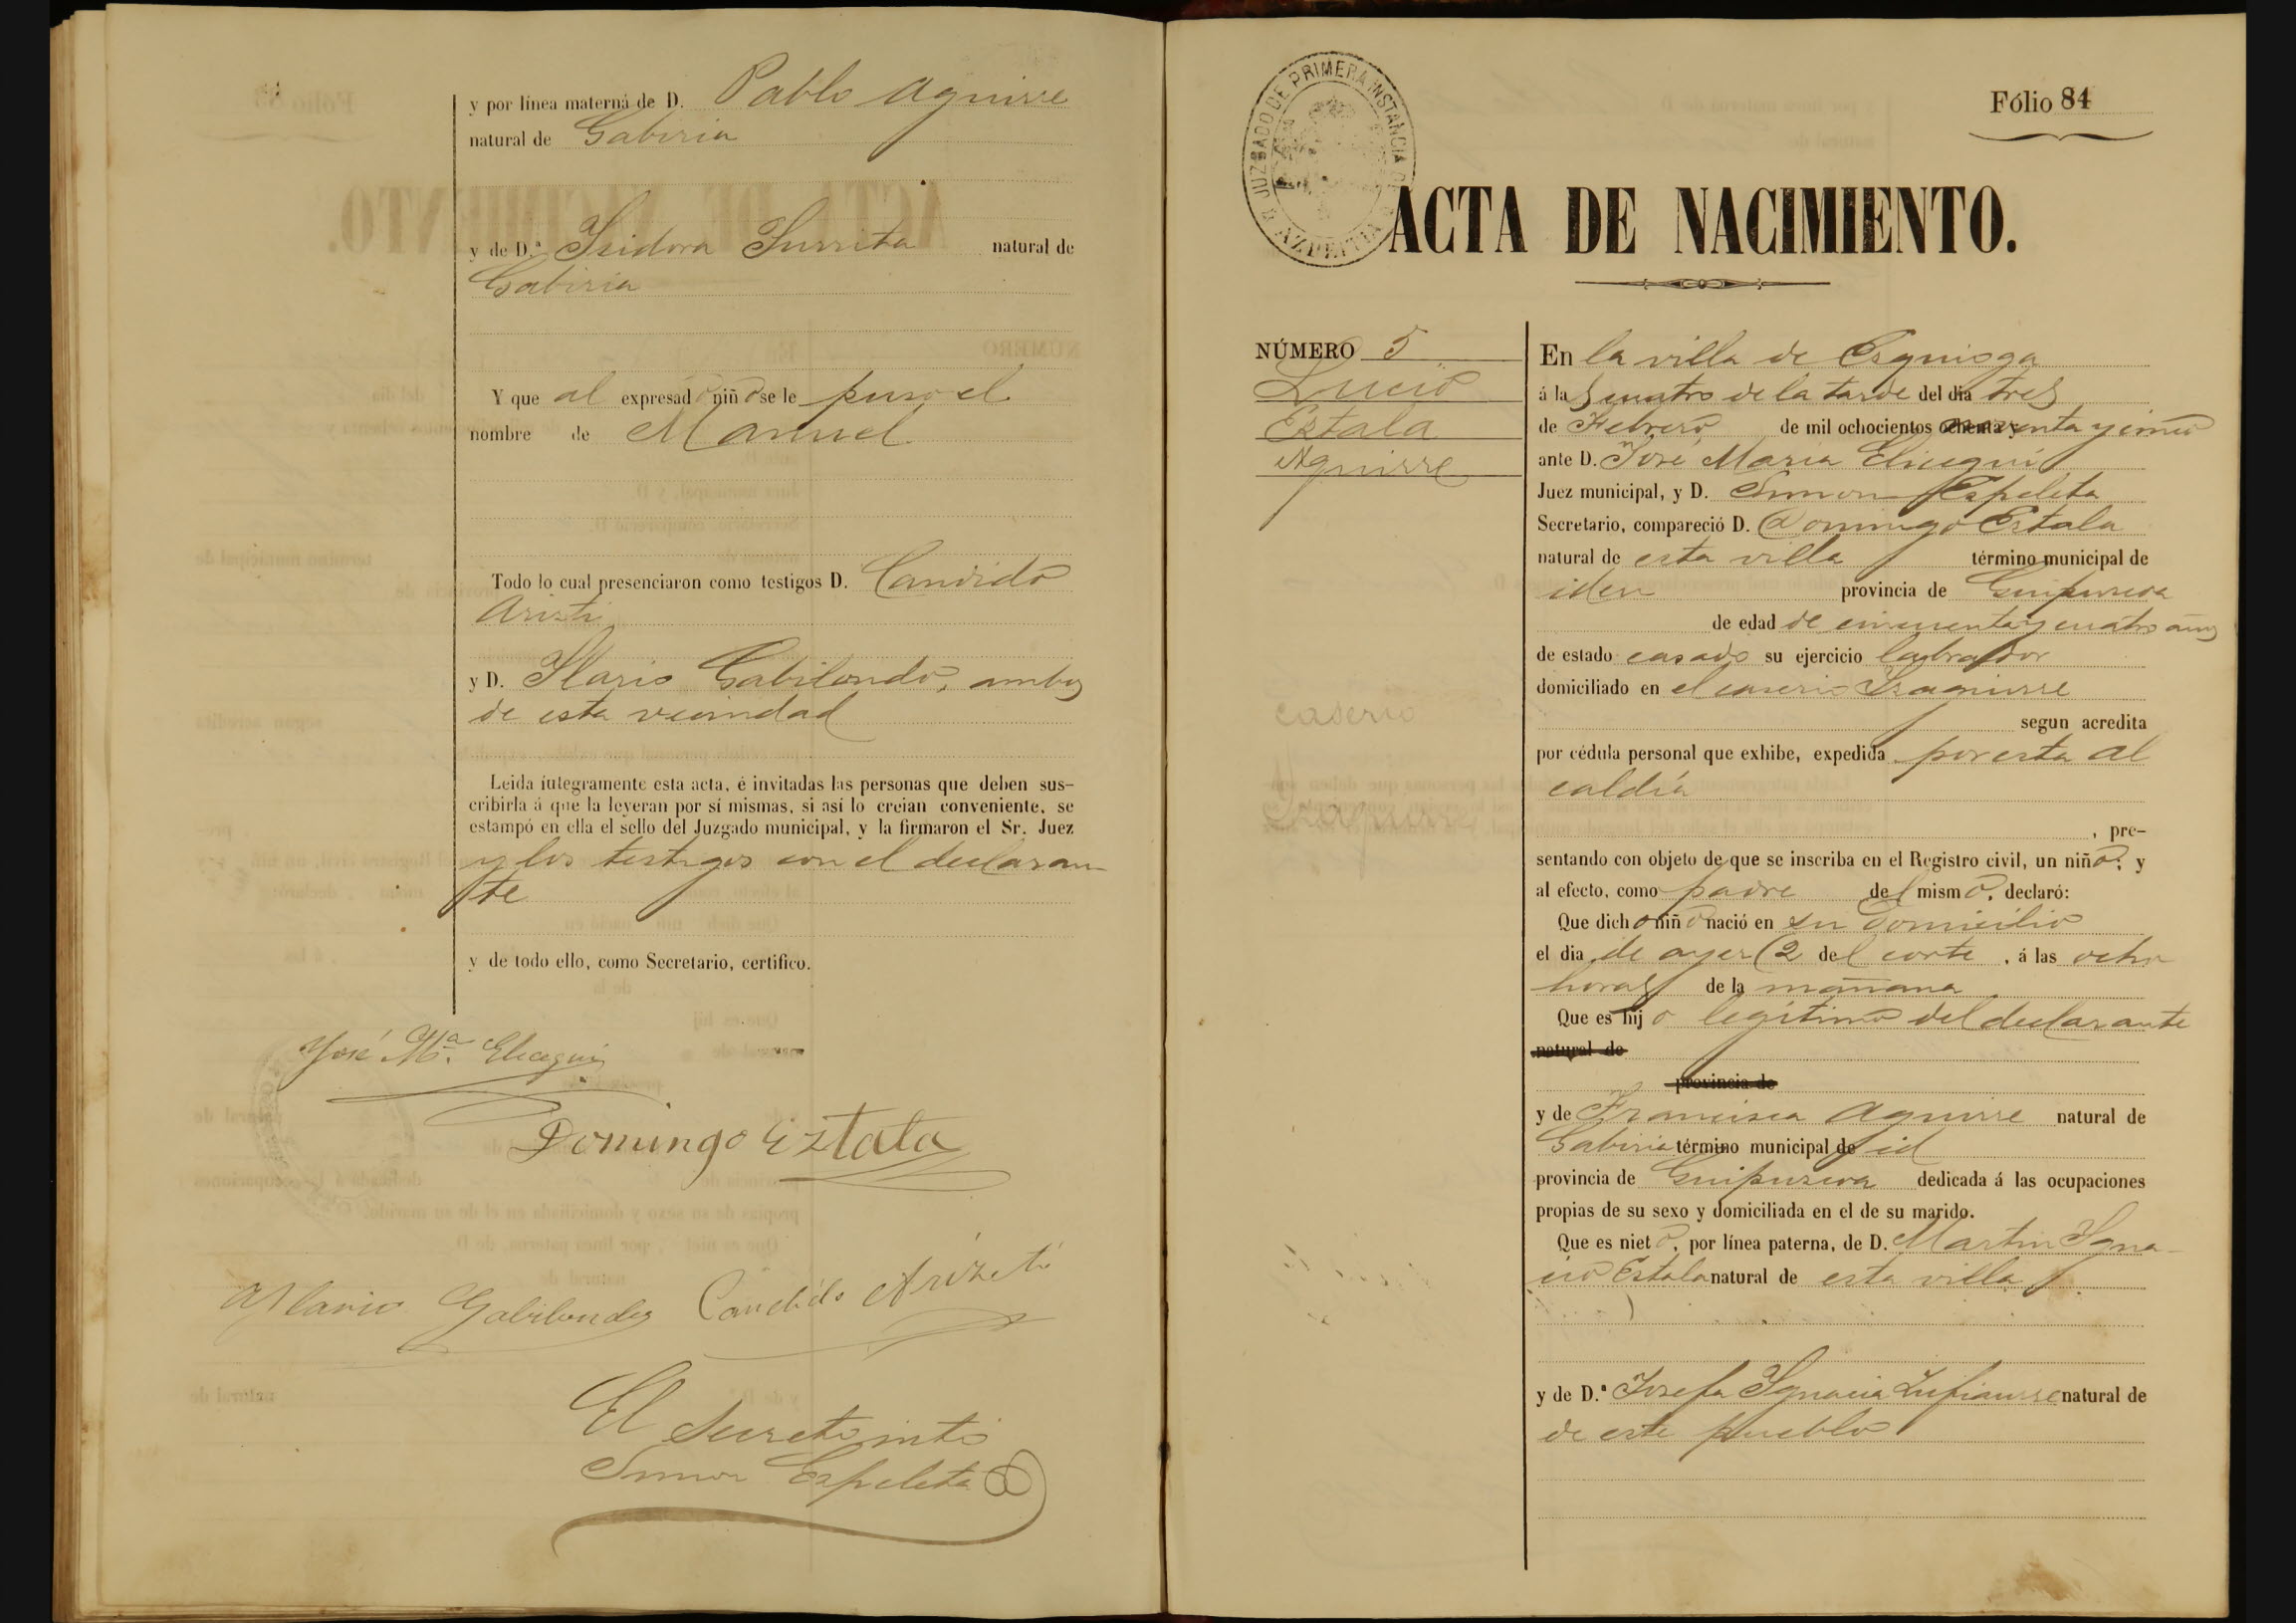 y por línea materna de D. Pablo Aguirre
natural de Gabiria
y de D.ª Isidora Iurrita natural de
Gabiria
Y que al expresado niño se le puso el
nombre de Manuel
Todo lo cual presenciaron como testigos D. Candido
Aristi
y D. Ilario Gabilondo, ambos
de esta vecindad
Leida íntegramente esta acta, é invitadas las personas que deben sus-
cribirla á que la leyeran por sí mismas, si así lo creian conveniente, se
estampó en ella el sello del Juzgado municipal, y la firmaron el Sr. Juez
y los testigos con el declaran
te
y de todo ello, como Secretario, certifico.
José Mª. Elicegui
Domingo Eztala
Ylario Gabilondo Candido Arizti
El Secret.
Simon Espeleta
JUZGADO DE PRIMERA INSTANCIA DE AZPEITIA
Fólio 84
ACTA DE NACIMIENTO.
NÚMERO 5
Lucio
Estala
Aguirre
caserio
En la villa de Esquioga
á las cuatro de la tarde del dia tres
de Febrero de mil ochocientos noventa y cinco
ante D. José Maria Elicegui
Juez municipal, y D. Simon Espeleta
Secretario, compareció D. Domingo Estala
natural de esta villa término municipal de
iden provincia de Guipuzcoa
de edad de cincuenta y cuatro años
de estado casado su ejercicio labrador
domiciliado en el caserio Izaguirre
segun acredita
por cédula personal que exhibe, expedida por esta al
caldía
, pre-
sentando con objeto de que se inscriba en el Registro civil, un niño; y
al efecto, como padre del mismo, declaró:
Que dicho niño nació en su domicilio
el dia de ayer (2 del corte , á las ocho
horas de la mañana
Que es hijo legítimo del declarante
natural de
provincia de
y de Francisca Aguirre natural de
Gabiria término municipal de id
provincia de Guipuzcoa dedicada á las ocupaciones
propias de su sexo y domiciliada en el de su marido.
Que es nieto, por línea paterna, de D. Martin Igna-
cio Estala natural de esta villa
y de D.ª Josefa Ignacia natural de
de este pueblo